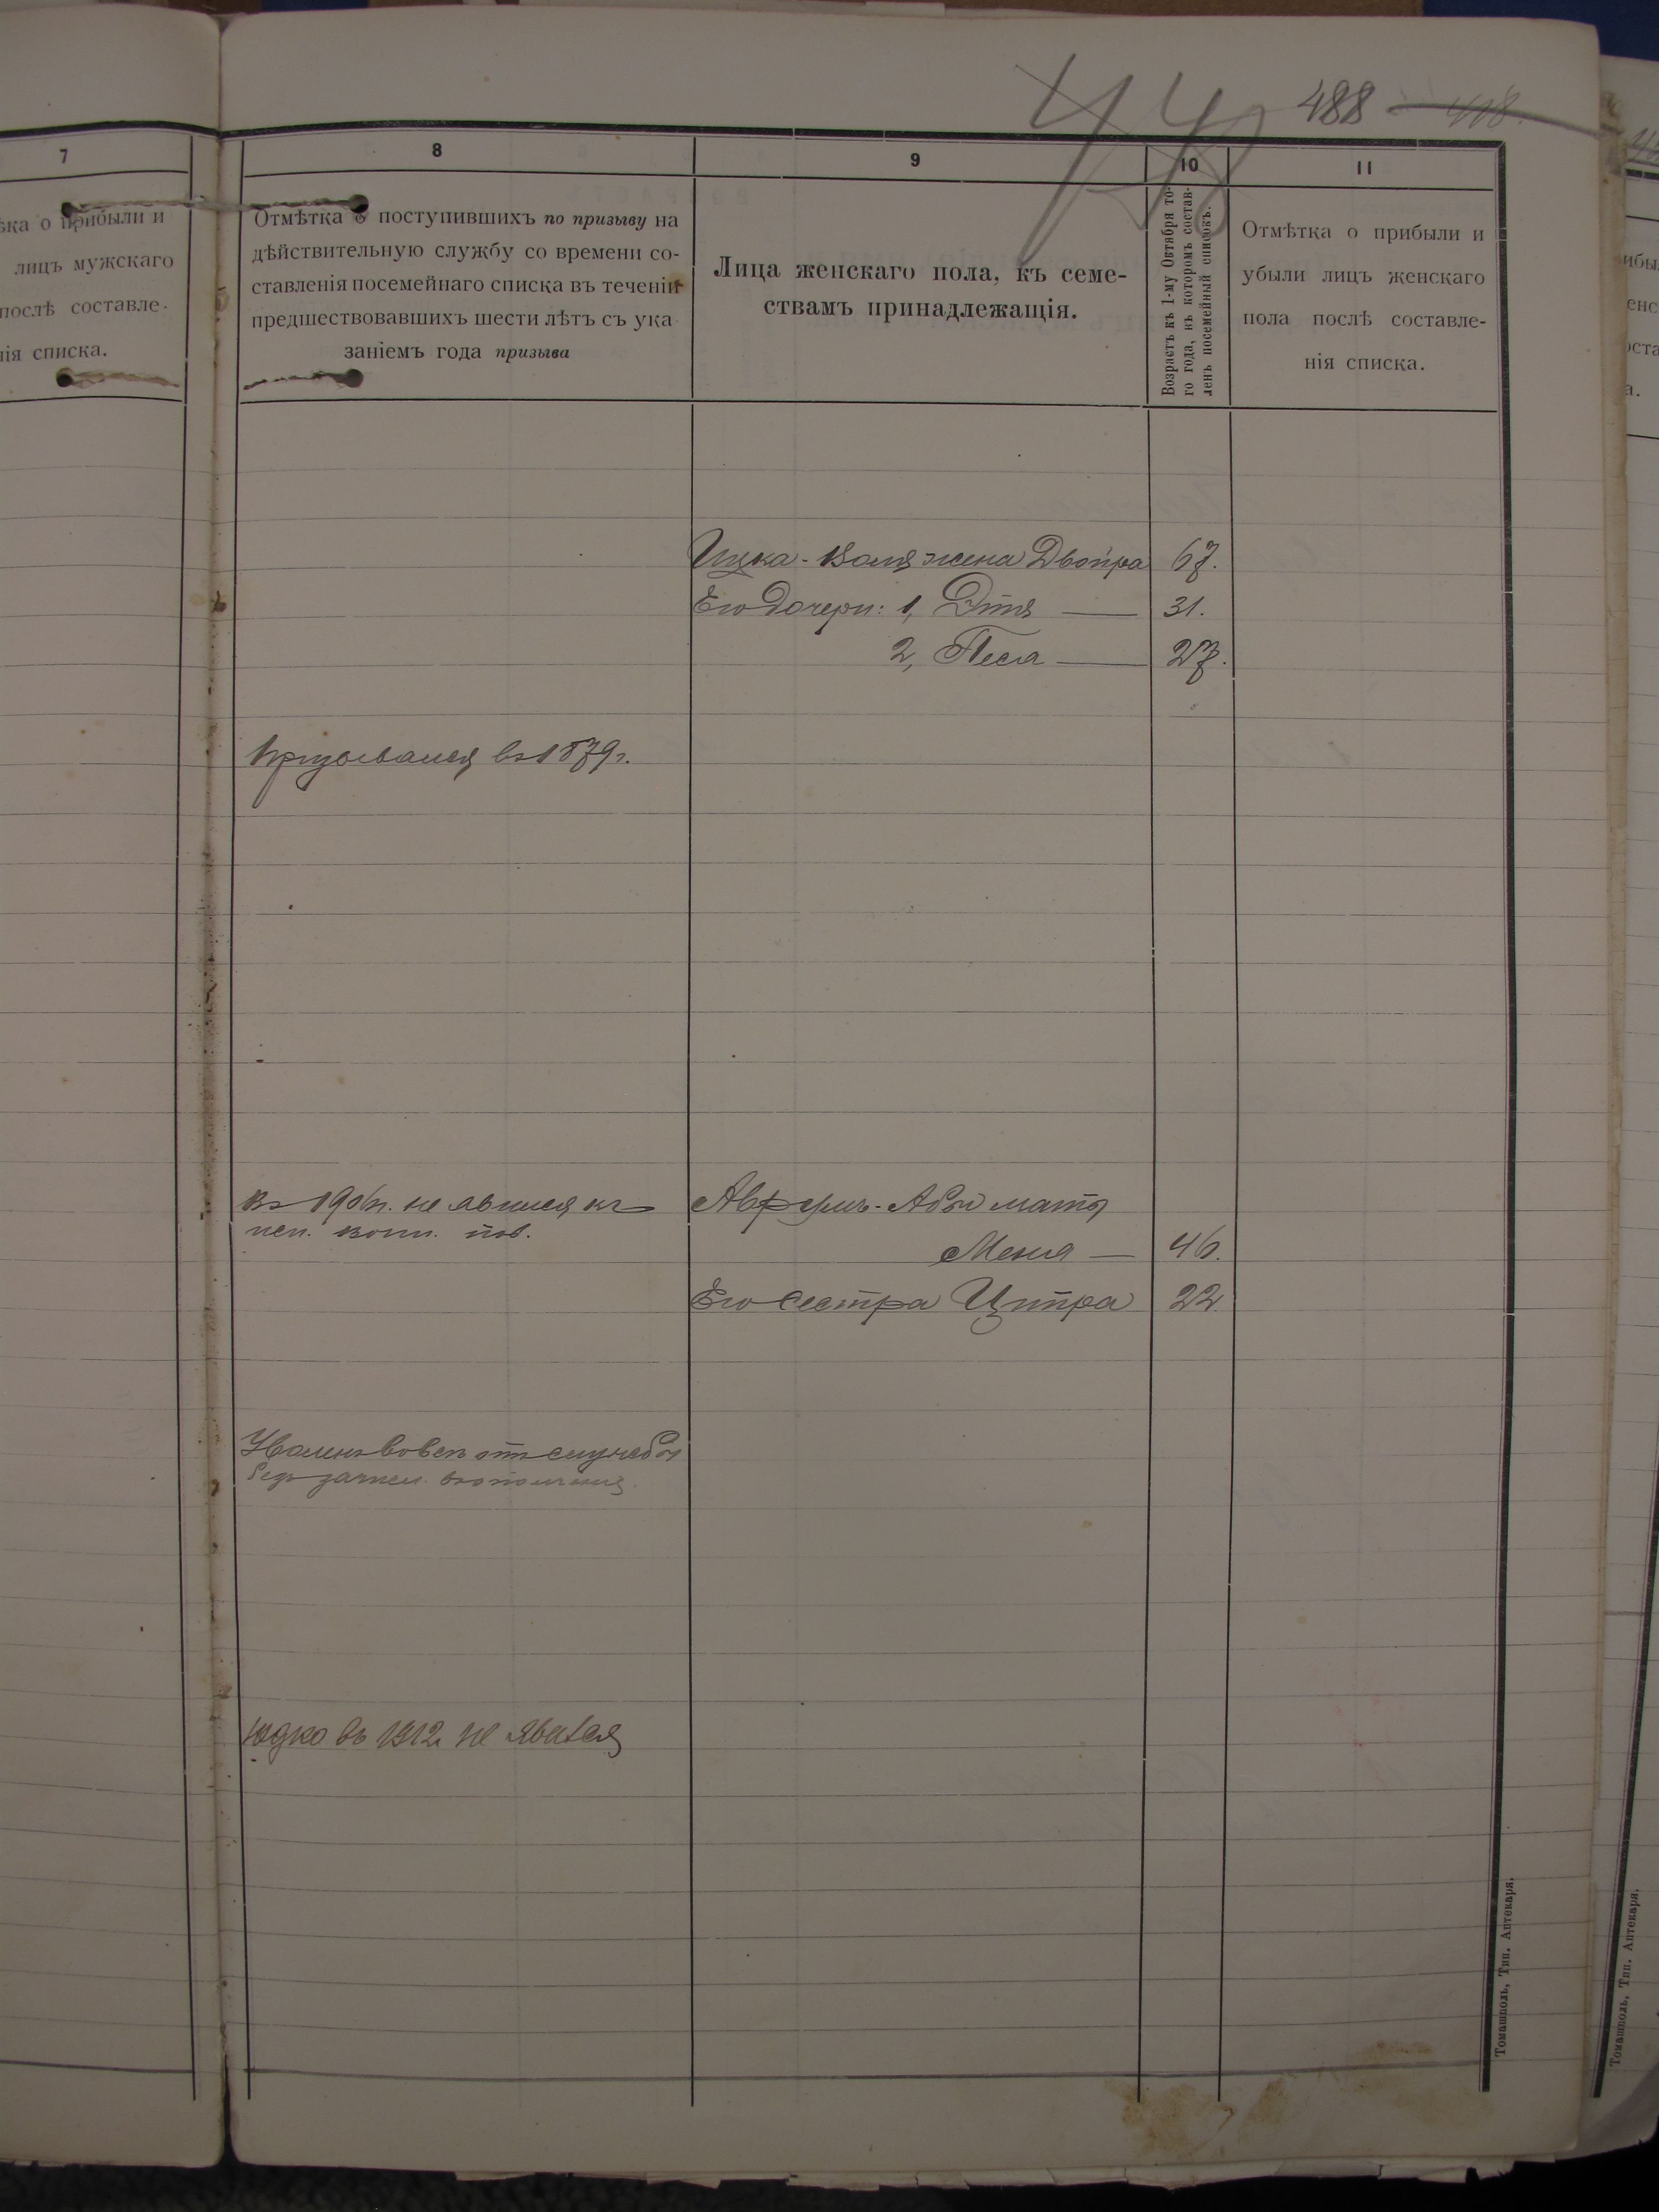 488 — 418.
7
8
9
10
11
ѣка о прибыли и
лицъ мужскаго
послѣ составле-
нія списка.
Отмѣтка о поступившихъ по призыву на
дѣйствительную службу со времени со-
ставленія посемейнаго списка въ теченіи
предшествовавшихъ шести лѣтъ съ ука
заніемъ года призыва
Лица женскаго пола, къ семе-
ствамъ принадлежащія.
Возрастъ къ 1-му Октября то-
го года, къ которомъ состав-
ленъ посемейный списокъ.
Отмѣтка о прибыли и
убыли лицъ женскаго
пола послѣ составле-
нія списка.
Ицка-Воля жена Двойра 67.
Его дочери: 1, Этя — 31.
2, Песя — 27.
Призывался въ 1879 г.
въ 1906 г. не явился къ
исп. воин. пов.
Аврумъ-Абы мать
Меня — 46.
Его сестра Ципра 22
вовсе отъ службы
безъ зачисл. въ ополченіе.
Юдко въ 1912 не явился
Томашполь, Тип. Аптекаря.
Томашполь, Тип. Аптекаря.